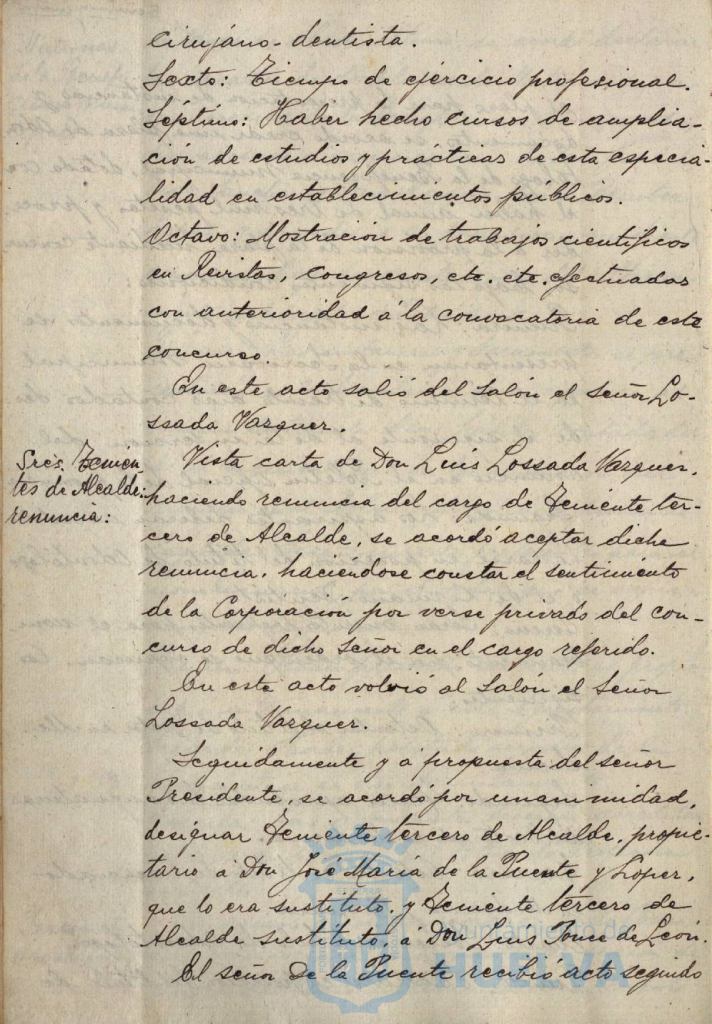 cirujano-dentista.
Sexto: Tiempo de ejercicio profesional.
Séptimo: Haber hecho cursos de amplia-
ción de estudios y prácticas de esta especia-
lidad en establecimientos públicos.
Octavo: Mostración de trabajos científicos
en Revistas, congresos, etc. etc. efectuadas
con anterioridad á la convocatoria de este
concurso.
En este acto salió del Salón el señor Lo-
ssada Vazquez.
Sres. Tenien-
tes de Alcalde:
renuncia:
Vista carta de Don Luis Lossada Vazquez,
haciendo renuncia del cargo de Teniente ter-
cero de Alcalde, se acordó aceptar dicha
renuncia, haciéndose constar el sentimiento
de la Corporación por verse privado del con-
curso de dicho señor en el cargo referido.
En este acto volvió al Salón el Señor
Lossada Vazquez.
Seguidamente y á propuesta del señor
Presidente, se acordó por unanimidad,
designar Teniente tercero de Alcalde, propie-
tario á Don José María de la Puente y Lopez,
que lo era sustituto, y Teniente tercero de
Alcalde sustituto, á Don Luis Ponce de León.
El señor de la Puente recibió acto seguido
Ayuntamiento de
HUELVA